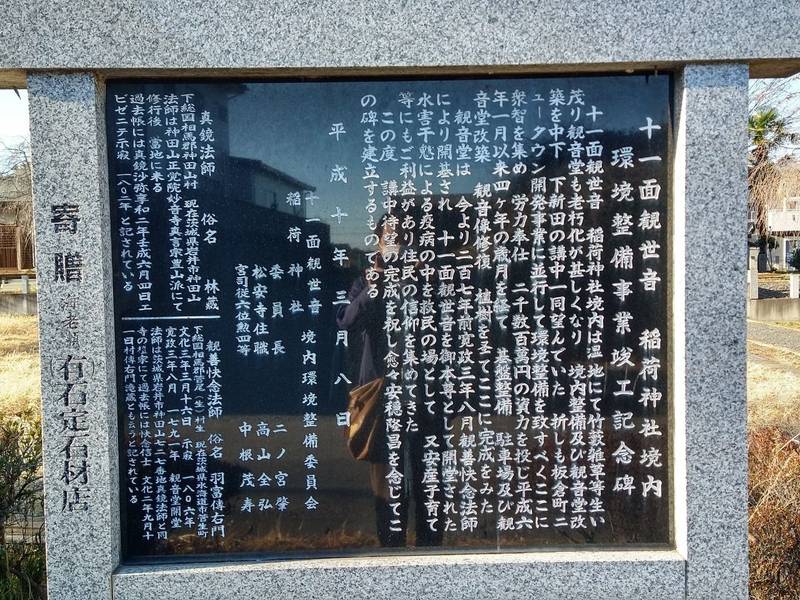 十一面観世音 稲荷神社境内
環境整備事業竣工記念碑
十一面観世音 稲荷神社境内は湿地にて竹薮雑草等生い
茂り観音堂も老朽化が甚しくなり 境内整備及び観音堂改
築を中下 下新田の講中一同望んでいた 折しも板倉町ニ
ュータウン開発事業に並行して環境整備を致すべくここに
衆智を集め 労力奉仕 二千数百萬円の資力を投じ平成六
年一月以来四ヶ年の歳月を経て 基盤整備 駐車場及び観
音堂改築 観音像修復 植樹を至てここに完成をみた
観音堂は 今より二百七年前寛政三年八月観善快念法師
により開基され 十一面観世音を御本尊として開堂された
水害干魃による疫病の中を救民の場として 又安産子育て
等にもご利益があり住民の信仰を集めてきた
この度 講中待望の完成を祝し愈々安穏隆昌を念じてこ
の碑を建立するものである
平成十年三月八日
十一面観世音
稲荷神社
境内環境整備委員会
委員長 二ノ宮肇
松安寺住職 高山全弘
宮司従六位勲四等 中根茂寿
真鏡法師 俗名 林蔵
下総国相馬郡神田山村 現在茨城県岩井市神田山
法師は神田山正覚院妙音寺真言宗豊山派にて
修行後 當地に来る
過去帳には真鏡沙弥享和二年壬戌六月四日エ
ビゼニテ示寂 一八〇二年と記されている
観善快念法師 俗名 羽富傳右門
下総国相馬郡菅尾(生)村生 現在茨城県水海道市菅生町
文化三年三月十六日 示寂 一八〇六年
寛政三年八月 一七九一年 観音堂開堂
法師は茨城県岩井市神田山七二七番地真鏡法師と同
寺の檀家にて過去帳には快念信士 文化二年九月十
一日村傳右門港蔵ともうと記されている
寄贈
有石定石材店